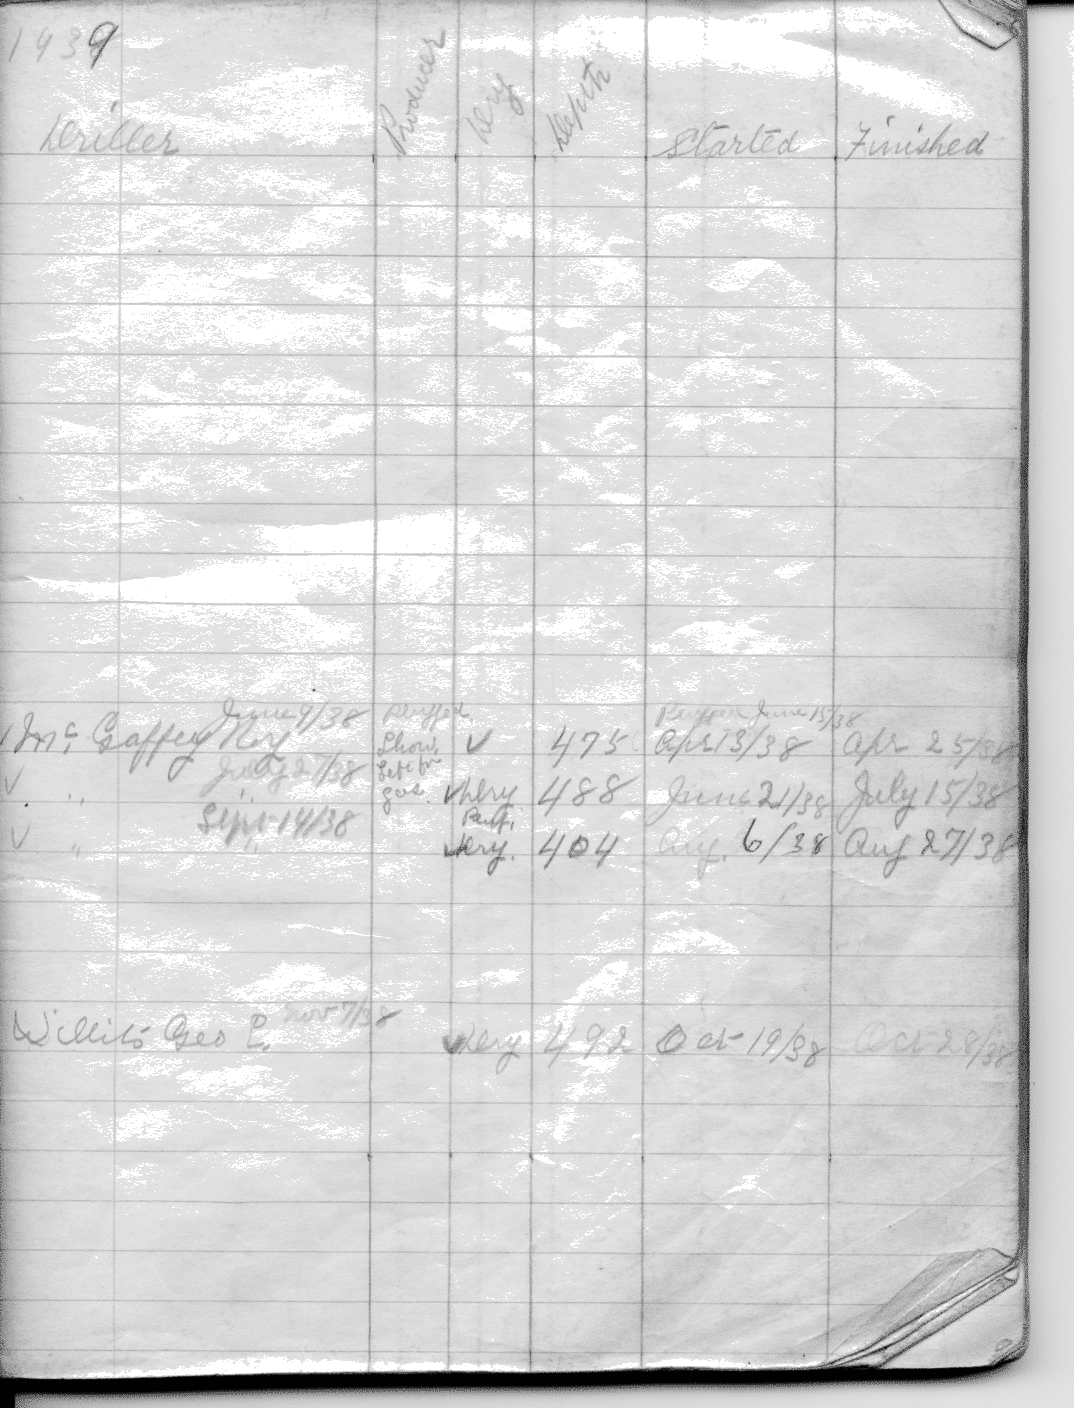 1939
Driller Producer Dry Depth Started Finished
June 9/38 Plugged Plugged June 15/38
✓ Mc Gaffey Roy Show ✓ 475 Apr 13/38 Apr 25/38
July 27/38 Left for
✓ " gas. ✓ Dry 488 June 21/38 July 15/38
Sept 14/38 Plug.
✓ " ✓ Dry. 404 Aug. 6/38 Aug 27/38
Nov 7/38
Willits Geo E. ✓ Dry 492 Oct 19/38 Oct 28/38